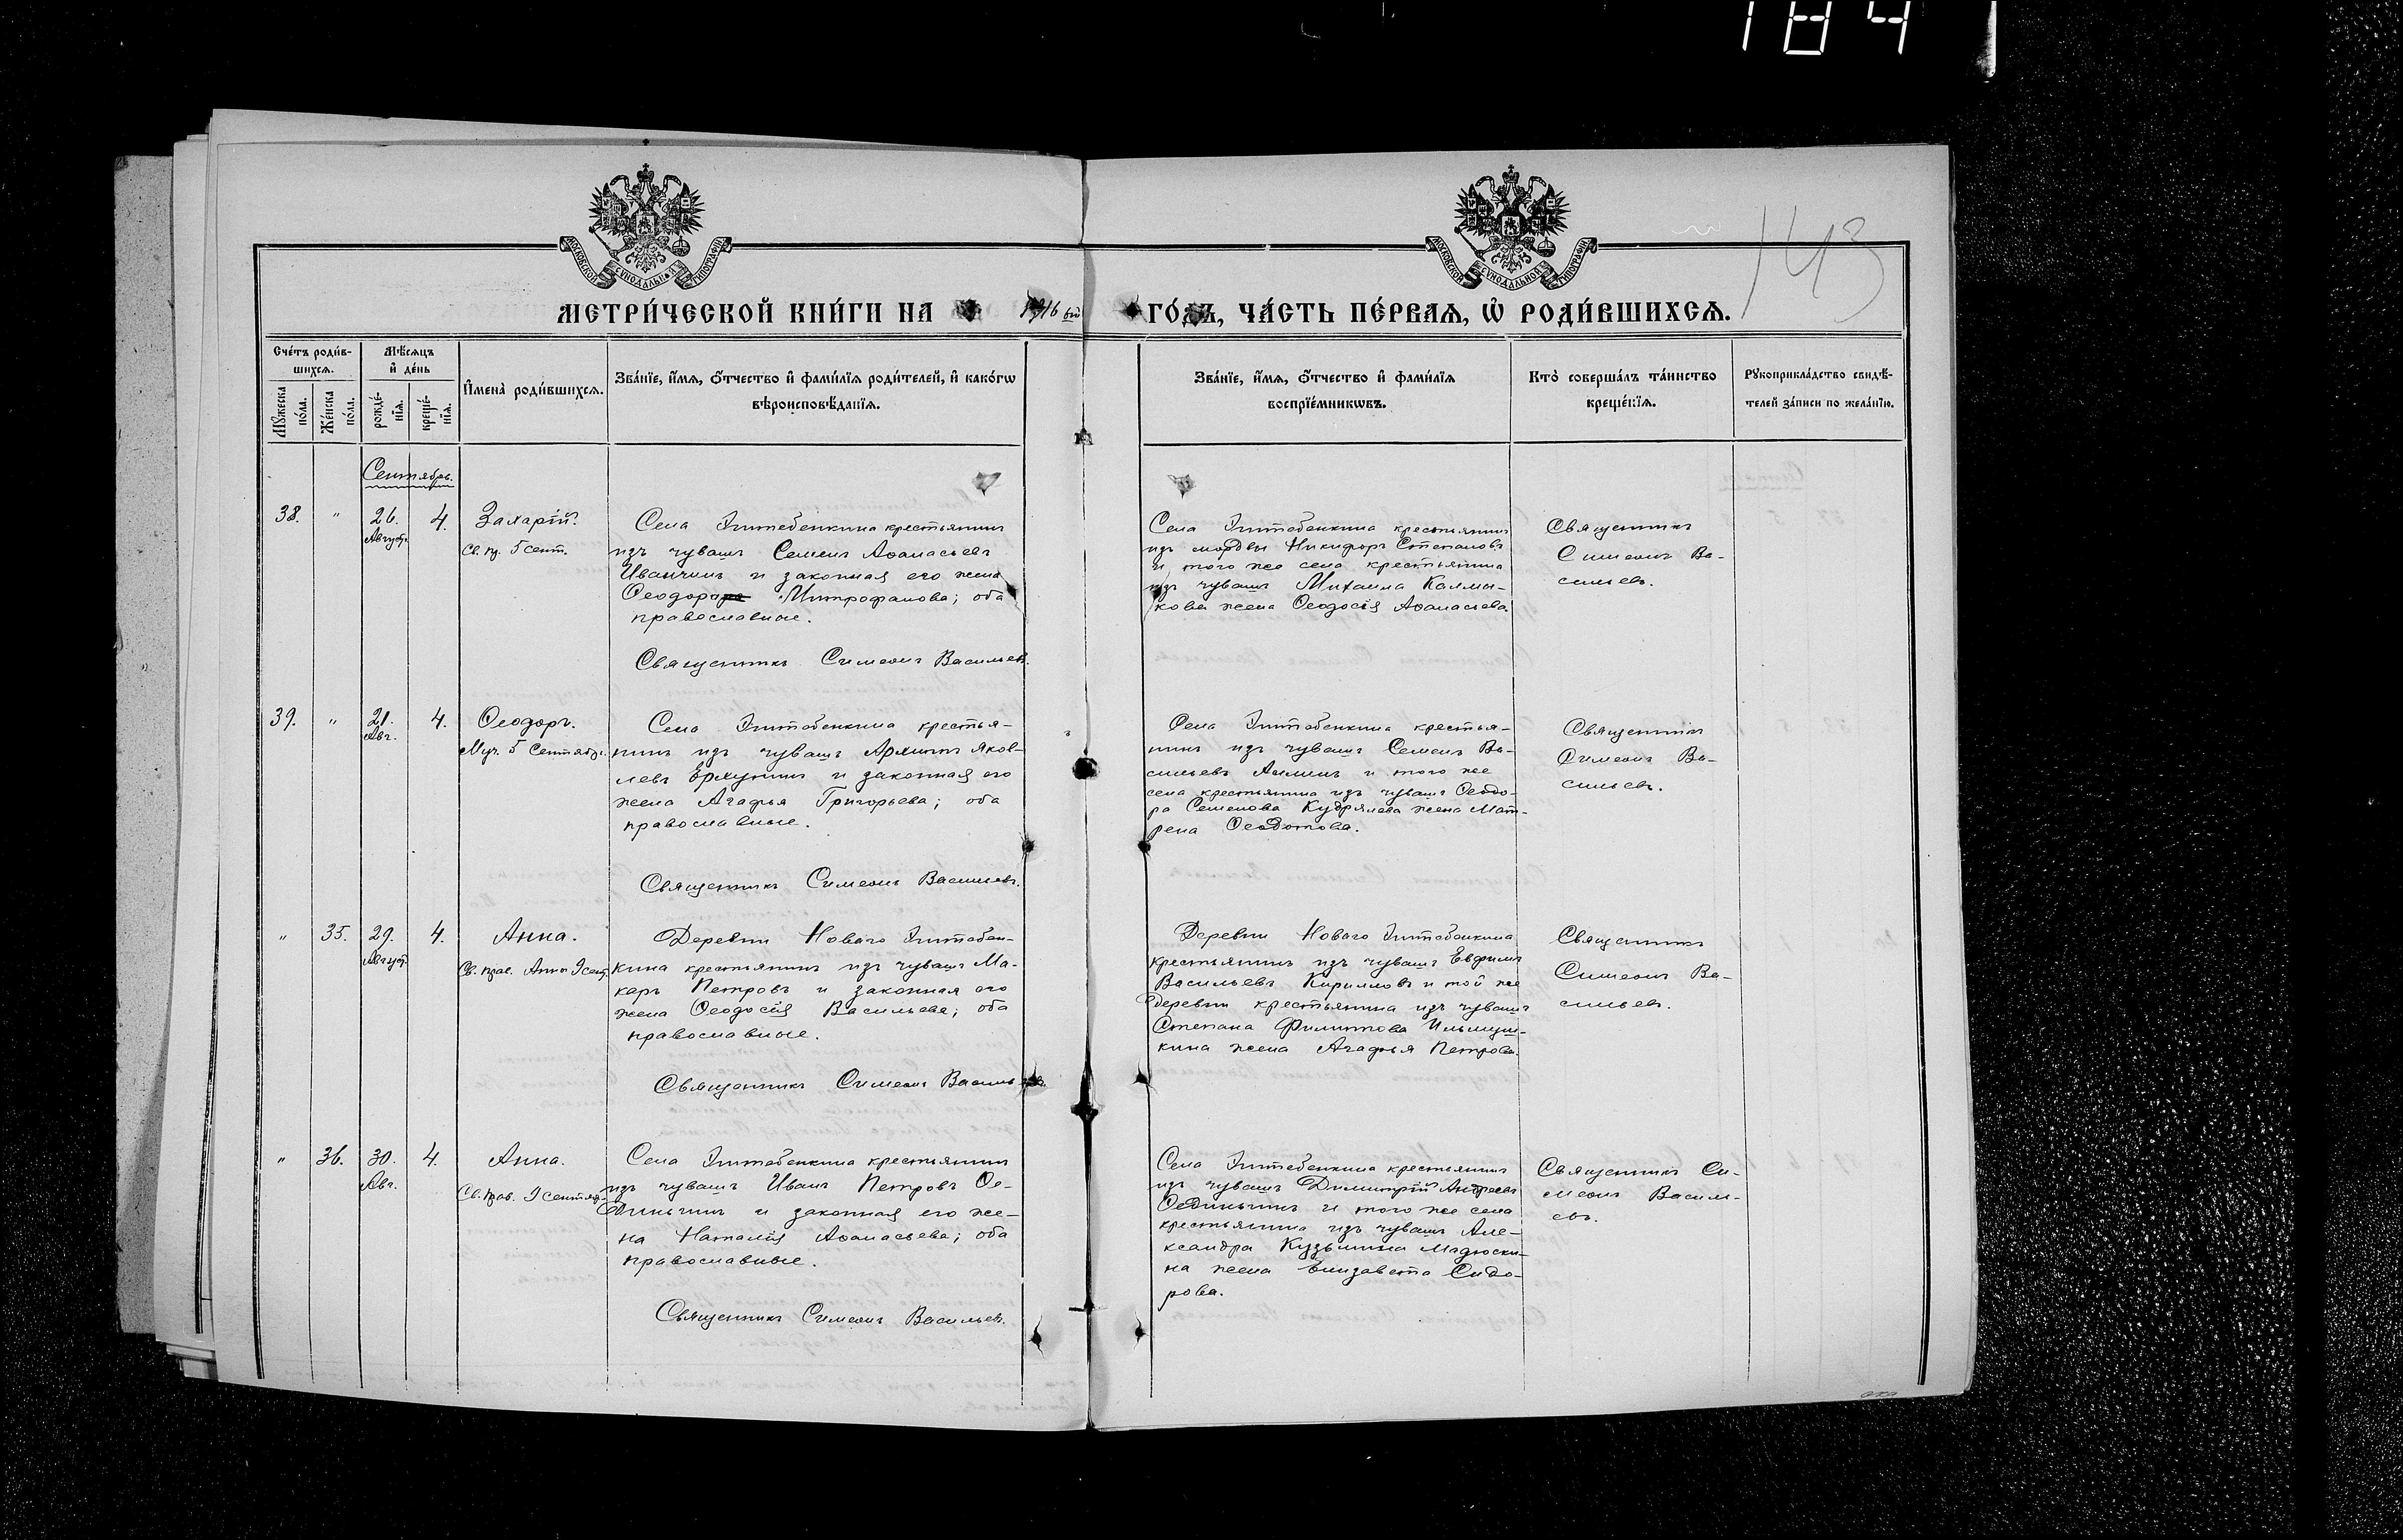 184
143
МОСКОВСКОЙ СѴНОДАЛЬНОЙ ТИПОГРАФІИ
МОСКОВСКОЙ СѴНОДАЛЬНОЙ ТИПОГРАФІИ
МЕТРИ́ЧЕСКОЙ КНИ́ГИ НА 1916 ый ГО́ДЪ, ЧА́СТЬ ПЕ́РВАЯ, Ѽ РОДИ́ВШИХСѦ.
Сче́тъ роди́в-
шихсѧ.
Мꙋ́жеска по́ла.
Же́нска по́ла.
Мѣ́сѧцъ и҆ де́нь
рожде́-
нїѧ.
креще́-
нїѧ.
И҆мена̀ роди́вшихсѧ.
Зва́нїе, и҆́мѧ, ѻ҆́тчество и҆ фами́лїѧ роди́телей, и҆ како́гѡ
вѣроисповѣ́данїѧ.
Зва́нїе, и҆́мѧ, ѻ҆́тчество и҆ фами́лїѧ
воспрїе́мникѡвъ.
Кто̀ соверша́лъ та́инство
креще́нїѧ.
Рꙋкоприкла́дство свидѣ́-
телей за́писи по жела́нїю.
Сентябрь.
38. " 26. Август. 4.
Захарій.
Св. пр. 5 сент.
Села Зитебенкина крестьянинъ
изъ чувашъ Семенъ Аѳанасьевъ
Иванчинъ и законная его жена
Ѳеодора Митрофанова; оба
православные.
Священникъ Симеонъ Васильевъ.
Села Зитебенкина крестьянинъ
изъ мордвы Никифоръ Степановъ
и того же села крестьянина
изъ чувашъ Михаила Калмы-
кова жена Ѳеодосія Аѳанасьева.
Священникъ
Симеонъ Ва-
сильевъ.
39. " 21. Авг. 4.
Ѳеодоръ.
Муч. 5 Сентябр.
Села Зитебенкина крестья-
нинъ изъ чувашъ Архипъ Яков-
левъ и законная его
жена Агафья Григорьева; оба
православные.
Священникъ Симеонъ Васильевъ.
Села Зитебенкина крестья-
нинъ изъ чувашъ Семенъ Ва-
сильевъ и того же
села крестьянина изъ чувашъ Ѳеодо-
ра Семенова Кудряшева жена Мат-
рена Ѳеодотова.
Священникъ
Симеонъ Ва-
сильевъ.
" 35. 29. Август. 4.
Анна.
Св. прав. Анны 9 сент.
Деревни Новаго Зитебен-
кина крестьянинъ изъ чувашъ Ма-
каръ Петровъ и законная его
жена Ѳеодосія Васильева; оба
православные.
Священникъ Симеонъ Васильевъ.
Деревни Новаго Зитебенкина
крестьянинъ изъ чувашъ Евфимъ
Васильевъ Кирилловъ и той же
деревни крестьянина изъ чувашъ
Степана Филиппова Ильмуш-
кина жена Агафья Петрова.
Священникъ
Симеонъ Ва-
сильевъ.
" 36. 30. Авг. 4.
Анна.
Св. прав. 9 сентябр.
Села Зитебенкина крестьянинъ
изъ чувашъ Иванъ Петровъ Ѳе-
динькинъ и законная его же-
на Наталія Аѳанасьева; оба
православные.
Священникъ Симеонъ Васильевъ.
Села Зитебенкина крестьянинъ
изъ чувашъ Димитрій Андреевъ
Ѳединькинъ и того же села
крестьянина изъ чувашъ Але-
ксандра Кузьмина Мадюски-
на жена Елизавета Сидо-
рова.
Священникъ Си-
меонъ Василь-
евъ.